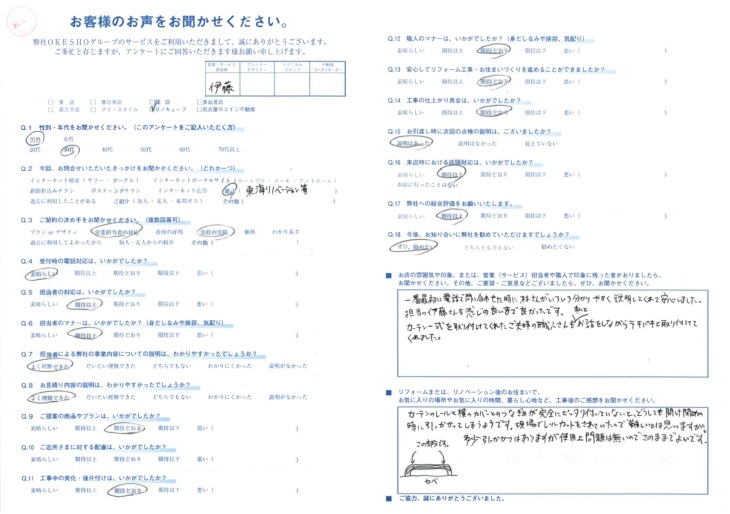 お客様のお声をお聞かせください。
弊社OKESHOグループのサービスをご利用いただきまして、誠にありがとうございます。
ご多忙と存じますが、アンケートにご回答いただきます様お願い申し上げます。
伊藤
Q.1 性別・年代をお聞かせください。(このアンケートをご記入いただく方)
男性 女性
20代 30代 40代 50代 60代 70代以上
Q.2 今回、お問合せいただいたきっかけをお聞かせください。(どれか一つ)
インターネット検索(ヤフー・グーグル) インターネットポータルサイト(ホームプロ・スーモ・アットホーム)
新聞折込みチラシ ポスティングチラシ インターネット広告 雑誌( 東海リノベーション等 )
過去に利用したことがある ご紹介(知人・友人・東邦ガス) その他( )
Q.3 ご契約の決め手をお聞かせください。(複数回答可)
プラン or デザイン 営業担当者の対応 近所の評判 会社の実績 価格 わかり易さ
過去に利用してよかったから 知人・友人からの紹介 その他( )
Q.4 受付時の電話対応は、いかがでしたか?
素晴らしい 期待以上 期待どおり 期待以下 悪い( )
Q.5 担当者の対応は、いかがでしたか?
素晴らしい 期待以上 期待どおり 期待以下 悪い( )
Q.6 担当者のマナーは、いかがでしたか?(身だしなみや挨拶、気配り)
素晴らしい 期待以上 期待どおり 期待以下 悪い( )
Q.7 担当者による弊社の事業内容についての説明は、わかりやすかったでしょうか?
よく理解できた だいたい理解できた どちらでもない わかりにくかった 説明がなかった
Q.8 お見積り内容の説明は、わかりやすかったでしょうか?
よく理解できた だいたい理解できた どちらでもない わかりにくかった 説明がなかった
Q.9 ご提案の商品やプランは、いかがでしたか?
素晴らしい 期待以上 期待どおり 期待以下 悪い( )
Q.10 ご近所さまに対する配慮は、いかがでしたか?
素晴らしい 期待以上 期待どおり 期待以下 悪い( )
Q.11 工事中の美化・後片付けは、いかがでしたか?
素晴らしい 期待以上 期待どおり 期待以下 悪い( )
Q.12 職人のマナーは、いかがでしたか?(身だしなみや挨拶、気配り)
素晴らしい 期待以上 期待どおり 期待以下 悪い( )
Q.13 安心してリフォーム工事・お住まいづくりを進めることができましたか?
素晴らしい 期待以上 期待どおり 期待以下 悪い( )
Q.14 工事の仕上がり具合は、いかがでしたか?
素晴らしい 期待以上 期待どおり 期待以下 悪い( )
Q.15 お引渡し時に次回の点検の説明は、ございましたか?
説明はあった 説明はなかった 覚えていない
Q.16 来店時における店頭対応は、いかがでしたか?
素晴らしい 期待以上 期待どおり 期待以下 悪い( )
お店に行ったことはない
Q.17 弊社への総合評価をお願いいたします。
素晴らしい 期待以上 期待どおり 期待以下 悪い( )
Q.18 今後、お知り合いに弊社を勧めていただけますでしょうか?
ぜひ、勧めたい どちらとも言えない 勧めたくない
■ お店の雰囲気や印象、または、営業(サービス)担当者や職人で印象に残った者がおりましたら、
お聞かせください。その他、ご要望・ご意見などございましたら、ぜひ、お聞かせください。
担当の伊藤さんも感じの良い方で良かったです。
くれました。
■ リフォームまたは、リノベーション後のお住まいで、
お気に入りの場所やお気に入りの時間、暮らし心地など、工事後のご感想をお聞かせください。
カーテンのレールと横のカバーとのつなぎ目が完全にピッタリ付いていないと、どうしても開け閉めの
時に引っかかってしまうようです。現場でレールカットをされていたので難しいとは思いますが。
多少引っかかりはありますが使用上問題は無いのでこのままでよいです。
この部分です。
カベ
■ ご協力、誠にありがとうございました。